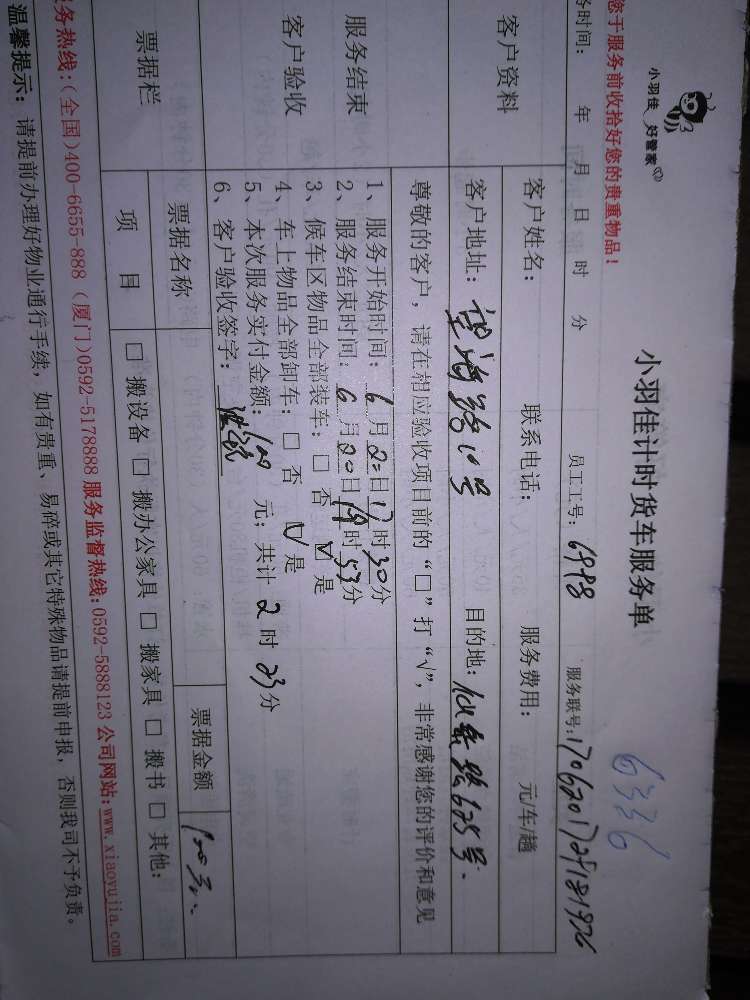 小羽佳 好管家
小羽佳计时货车服务单
6336
您于服务前收拾好您的贵重物品！
务时间： 年 月 日 时 分 员工工号：6998 服务联号：
客户资料
客户姓名： 联系电话： 服务费用： 元/车/趟
客户地址：望海路10号 目的地：仙岳路625号.
尊敬的客户，请在相应验收项目前的“□”打“√”，非常感谢您的评价和意见
服务结束
客户验收
1、服务开始时间：6月20日17时30分
2、服务结束时间：6月20日19时53分
3、候车区物品全部装车：□ 否 ☑ 是
4、车上物品全部卸车：□ 否 ☑ 是
5、本次服务实付金额：100 元；共计 2 时 23 分
6、客户验收签字：
票据栏
票据名称 票据金额 100元
项 目 □ 搬设备 □ 搬办公家具 □ 搬家具 □ 搬书 □ 其他：
务热线：(全国)400-6655-888 (厦门)0592-5178888 服务监督热线：0592-5888123 公司网站：www.xiaoyujia.com
温馨提示：请提前办理好物业通行手续，如有贵重、易碎或其它特殊物品请提前申报，否则我司不予负责。